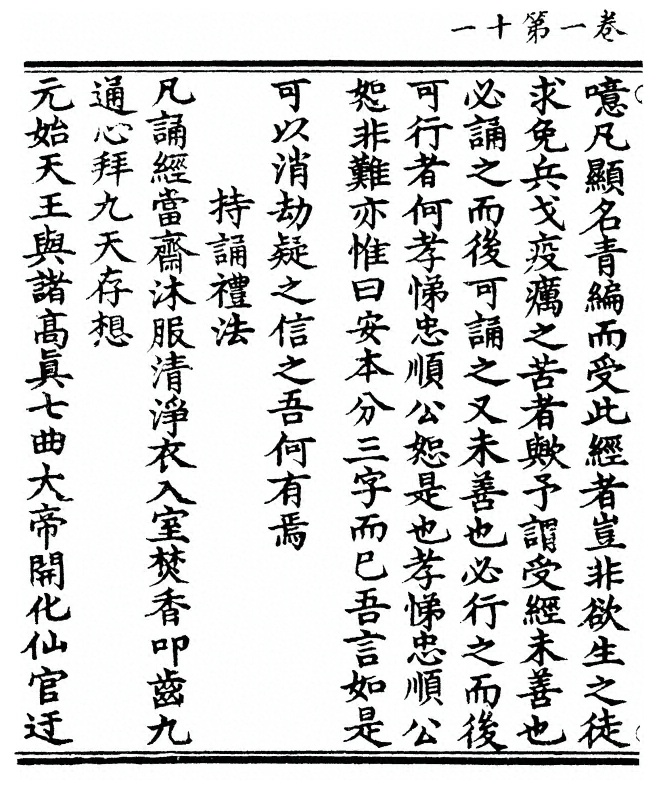 卷一第十一
噫凡顯名青編而受此經者豈非欲生之徒
求免兵戈疫癘之苦者歟予謂受經未善也
必誦之而後可誦之又未善也必行之而後
可行者何孝悌忠順公恕是也孝悌忠順公
恕非難亦惟曰安本分三字而巳吾言如是
可以消劫疑之信之吾何有焉
持誦禮法
凡誦經當齋沐服清淨衣入室焚香叩齒九
通心拜九天存想
元始天王與諸高眞七曲大帝開化仙官迂